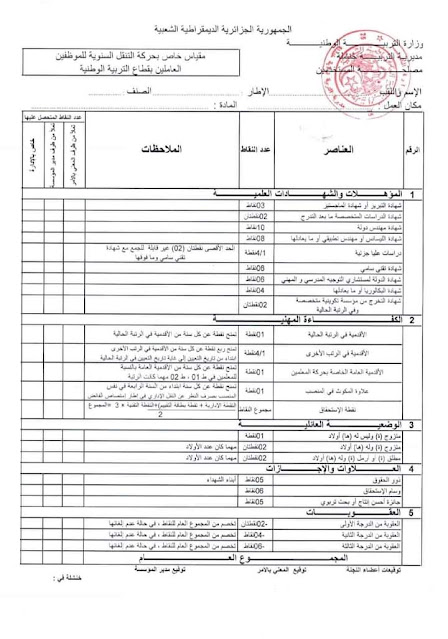 الجمهورية الجزائرية الديمقراطية الشعبية
وزارة التربية الوطنية
مديرية التربية خنشلة
مقياس خاص بحركة التنقل السنوية للموظفين
العاملين بقطاع التربية الوطنية
الإسم واللقب
الإطار :
الصنف
مكان العمل :
المادة :
الرقم
العناصر
عدد النقاط
الملاحظات
عدد النقاط المتحصل عليها
تملأ من طرف مدير المؤسسة
تملأ من طرف المعني بالأمر
خاص بالإدارة
1 المؤهلات والشهادات العلمية
شهادة التبريز أو شهادة الماجستير 03نقاط
شهادة الدراسات المتخصصة ما بعد التدرج 02نقطتان
شهادة مهندس دولة 10نقاط
شهادة الليسانس أو مهندس تطبيقي أو ما يعادلها 08نقاط
دراسات عليا جزئية 4/1نقطة الحد الأقصى نقطتان (02) غير قابلة للجمع مع شهادة
تقني سامي وما فوقها
شهادة تقني سامي 06نقاط
شهادة الدولة لمستشاري التوجيه المدرسي و المهني 06نقاط
شهادة البكالوريا أو ما يعادلها 04نقاط
شهادة التخرج من مؤسسة تكوينية متخصصة
وفي الرتبة الحالية
02نقطتان
2 الكفاءة المهنية
الأقدمية في الرتبة الحالية 01نقطة تمنح نقطة عن كل سنة من الأقدمية في الرتبة الحالية
الأقدمية في الرتب الأخرى 4/1نقطة تمنح ربع نقطة عن كل سنة من الأقدمية في الرتب الأخرى
ابتداء من تاريخ التعيين إلى غاية تاريخ التعيين في الرتبة الحالية
الأقدمية العامة الخاصة بحركة المعلمين 01نقطة تمنح نقطة عن كل سنة من الأقدمية العامة بالنسبة
للمعلمين في ط 01 ، ط 02 مهما كانت الرتبة
علاوة المكوث في المنصب 01نقطة تمنح نقطة عن كل سنة ابتداء من السنة الرابعة في نفس
المنصب بصرف النظر عن النقل الإداري في إطار
نقطة الإستحقاق مجموع النقاط النقطة الإدارية + نقطة بطاقة التقييم+النقطة التقنية * 3 =المجموع
2
3 الوضعية العائلية
متزوج (ة) وليس له (ها) أولاد 01نقطة
متزوج (ة) وله (ها) أولاد 02نقطتان مهما كان عدد الأولاد
مطلق (ة) أو أرمل (ة) وله (ها) أولاد 01نقطة مهما كان عدد الأولاد
4 العلاوات والإجازات
ذوو الحقوق 05نقاط أبناء الشهداء
وسام الإستحقاق 06نقاط
جائزة أحسن إنتاج أو بحث تربوي 05نقاط
5 العقوبات
العقوبة من الدرجة الأولى -02نقطتان تخصم من المجموع العام للنقاط ، في حالة عدم إلغائها
العقوبة من الدرجة الثانية -04نقاط تخصم من المجموع العام للنقاط ، في حالة عدم إلغائها
العقوبة من الدرجة الثالثة -06نقاط تخصم من المجموع العام للنقاط ، في حالة عدم إلغائها
المجموع العام
توقيعات أعضاء اللجنة
توقيع المعني بالأمر
توقيع مدير المؤسسة
خنشلة في :